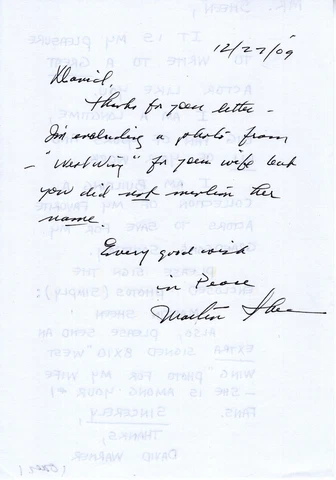 12/27/09
David,
Thanks for your letter -
I'm including a photo from
- "West Wing" for your wife but
you did not mention her
name.
Every good wish
in Peace
Martin Sheen
MR. SHEEN,
IT IS MY PLEASURE
TO WRITE TO A GREAT
ACTOR LIKE
I AM A
COLLECTION OF MY FAVORITE
ACTORS TO SAVE FOR MY
PLEASE SIGN THE
PHOTOS (SIMPLY):
SHEEN
ALSO, PLEASE SEND AN
EXTRA SIGNED 8X10 "WEST
WING" PHOTO FOR MY WIFE
- SHE IS AMONG YOUR #1
FANS.
SINCERELY,
THANKS,
DAVID WARNER
(OVER)